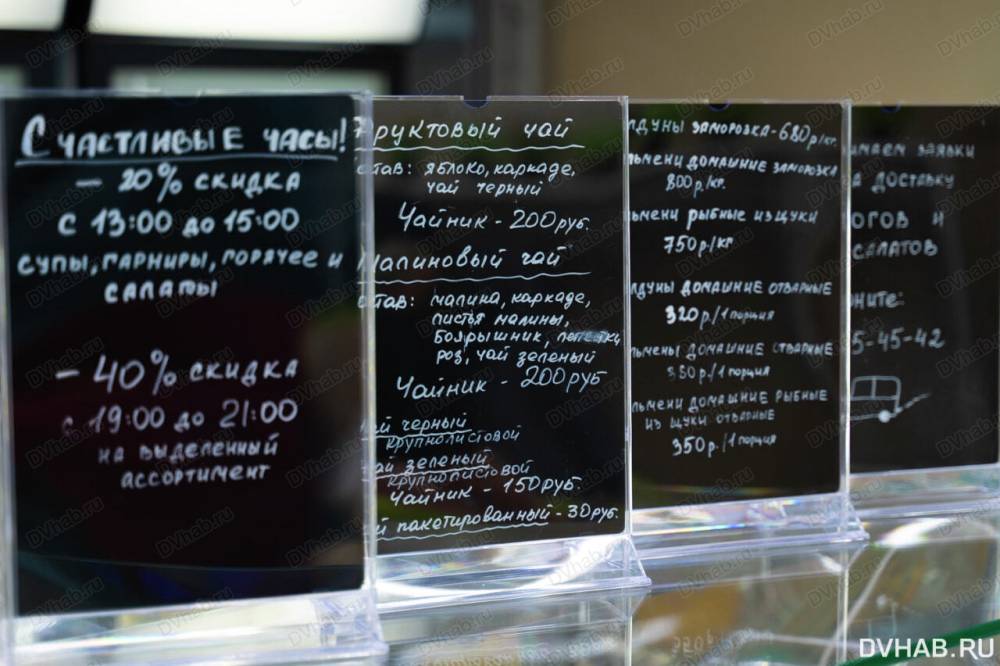 Счастливые часы!
- 20% скидка
с 13:00 до 15:00
супы, гарниры, горячее и
салаты
- 40% скидка
с 19:00 до 21:00
на выделенный
ассортимент
Фруктовый чай
став: яблоко, каркаде,
чай черный
Чайник - 200 руб.
Малиновый чай
став: малина, каркаде,
листья малины,
боярышник, лепестки
роз, чай зеленый
Чайник - 200 руб
ай черный
крупнолистовой
чай зеленый
крупнолистовой
Чайник - 150 руб
ай пакотированный - 30 руб.
лдуны заморозка - 680 р/кг.
льмени домашние заморозка
800 р/кг.
льмени рыбные из щуки
750 р/кг
лдуны домашние отварные
320 р/1 порция
льмены домашние отварные
350 р/1 порция
льмени домашние рыбные
из щуки отварные
350 р./1 порция
маем заявки
а доставку
огов и
салатов
ните:
5-45-42
DVHAB.RU